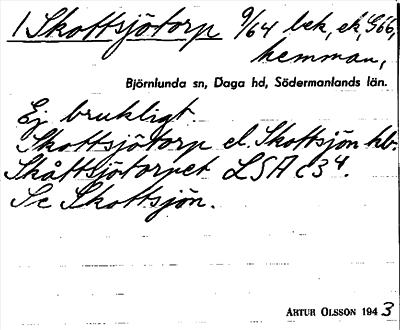 1 Skottsjötorp 9/64 bek, ek, G66,
hemman,
Björnlunda sn, Daga hd, Södermanlands län.
Ej brukligt.
Skottsjötorp el. Skottsjön hb.
Skåttsjötorpet LSA C3⁴.
Se Skottsjön.
ARTUR OLSSON 1943